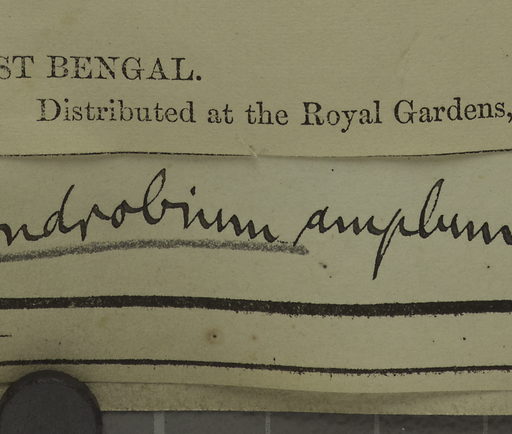 ST BENGAL.
Distributed at the Royal Gardens,
ndrobium amplum